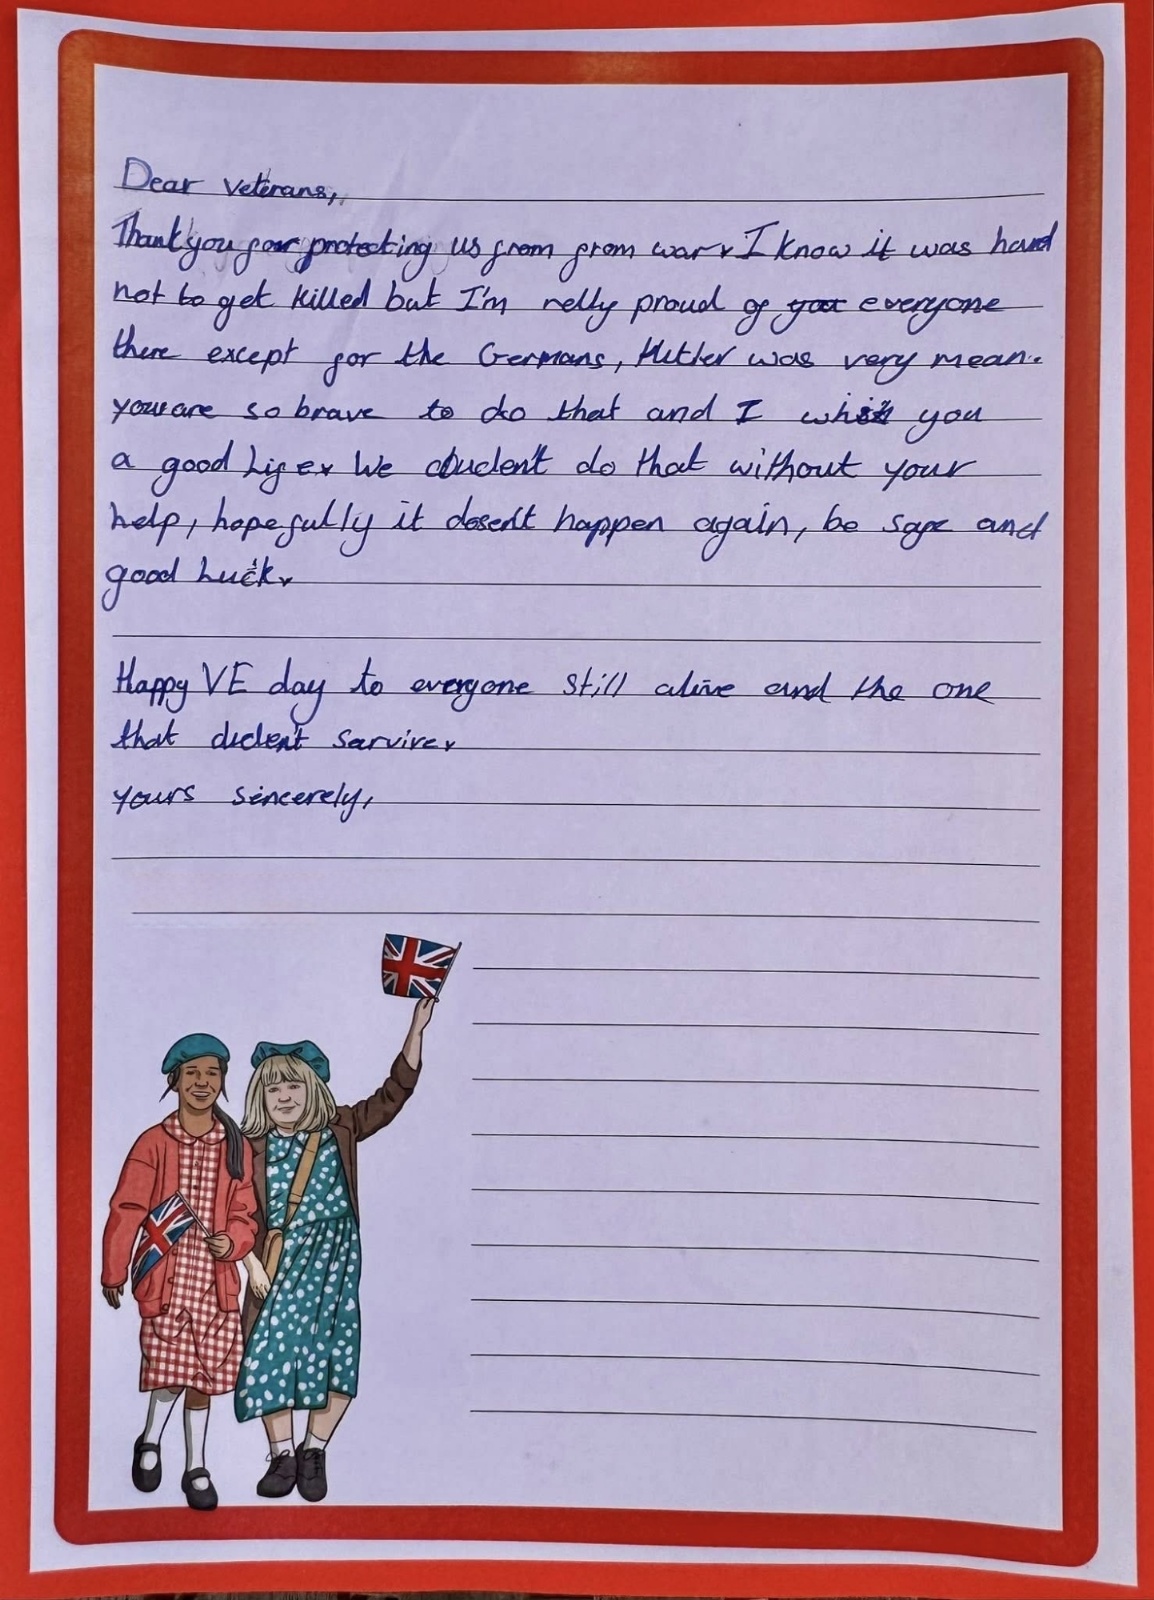 Dear veterans,
Thank you for protecting us from from war. I know it was hard
not to get killed but I'm relly proud of you everyone
there except for the Germans, Hitler was very mean.
you are so brave to do that and I whish you
a good life. We cduden't do that without your
help, hopefully it dosen't happen again, be safe and
good luck.
Happy VE day to everyone still alive and the one
that diden't sarvive.
yours sincerely,